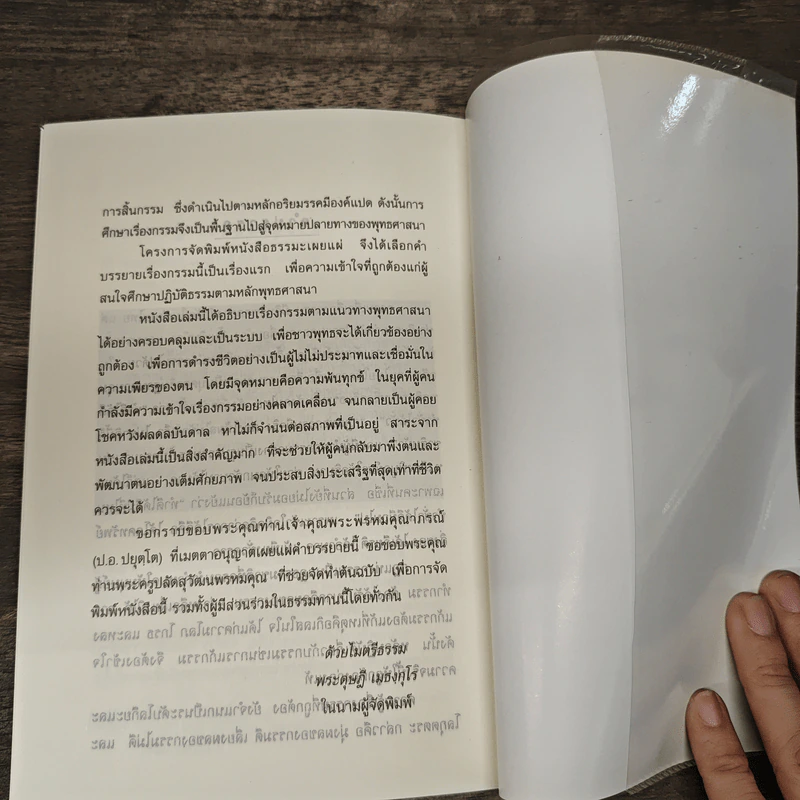 การสิ้นกรรม ซึ่งดำเนินไปตามหลักอริยมรรคมีองค์แปด ดังนั้นการ
ศึกษาเรื่องกรรมจึงเป็นพื้นฐานไปสู่จุดหมายปลายทางของพุทธศาสนา
โครงการจัดพิมพ์หนังสือธรรมะเผยแผ่ จึงได้เลือกคำ
บรรยายเรื่องกรรมนี้เป็นเรื่องแรก เพื่อความเข้าใจที่ถูกต้องแก่ผู้
สนใจศึกษาปฏิบัติธรรมตามหลักพุทธศาสนา
หนังสือเล่มนี้ได้อธิบายเรื่องกรรมตามแนวทางพุทธศาสนา
ได้อย่างครอบคลุมและเป็นระบบ เพื่อชาวพุทธจะได้เกี่ยวข้องอย่าง
ถูกต้อง เพื่อการดำรงชีวิตอย่างเป็นผู้ไม่ไม่ประมาทและเชื่อมั่นใน
ความเพียรของตน โดยมีจุดหมายคือความพ้นทุกข์ ในยุคที่ผู้คน
กำลังมีความเข้าใจเรื่องกรรมอย่างคลาดเคลื่อน จนกลายเป็นผู้คอย
โชคหวังผลดลบันดาล หาไม่ก็จำนนต่อสภาพที่เป็นอยู่ สาระจาก
หนังสือเล่มนี้เป็นสิ่งสำคัญมาก ที่จะช่วยให้ผู้คนกลับมาพึ่งตนและ
พัฒนาตนอย่างเต็มศักยภาพ จนประสบสิ่งประเสริฐที่สุดเท่าที่ชีวิต
ควรจะได้
ขอกราบขอบพระคุณท่านเจ้าคุณพระพรหมคุณาภรณ์
(ป.อ. ปยุตฺโต) ที่เมตตาอนุญาตเผยแผ่คำบรรยายนี้ ขอขอบพระคุณ
ท่านพระครูปลัดสุวัฒนพรหมคุณ ที่ช่วยจัดทำต้นฉบับ เพื่อการจัด
พิมพ์หนังสือนี้ รวมทั้งผู้มีส่วนร่วมในธรรมทานนี้โดยทั่วกัน
ด้วยไมตรีธรรม
พระดุษฎี เมธงฺกุโร
ในนามผู้จัดพิมพ์